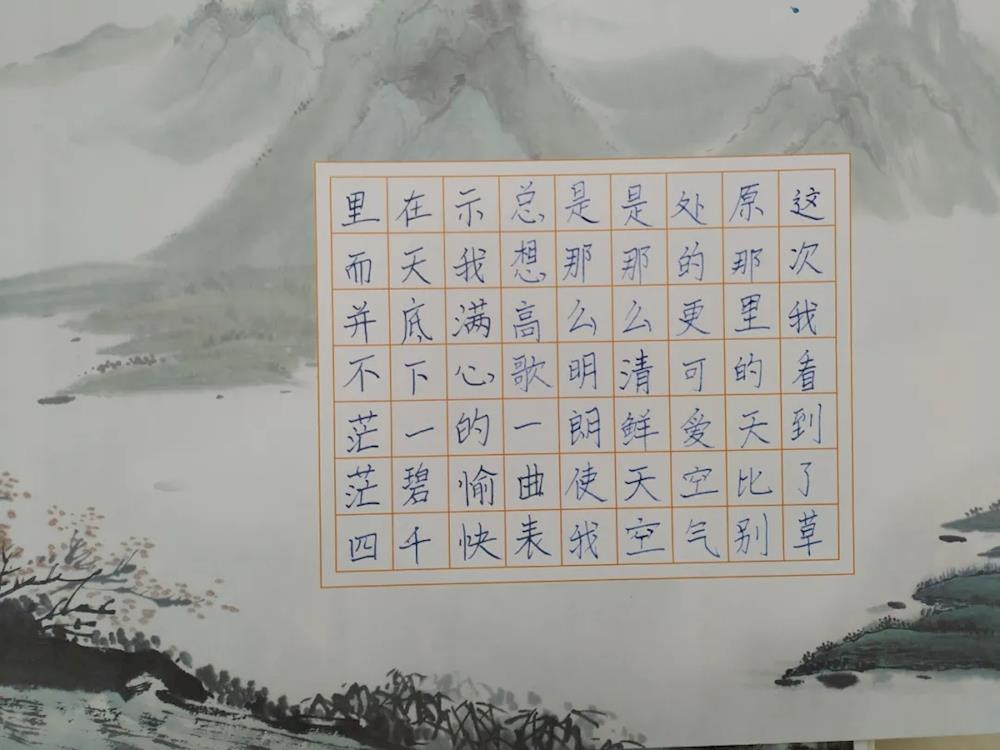 这次我看到了草
原那里的天比别
处的更可爱空气
是那么清鲜天空
是那么明朗使我
总想高歌一曲表
示我满心的愉快
在天底下一碧千
里而并不茫茫四